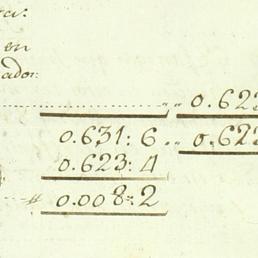 en
ador:
0.622
0.631: 6 0.622
0.623: 4
0.008: 2